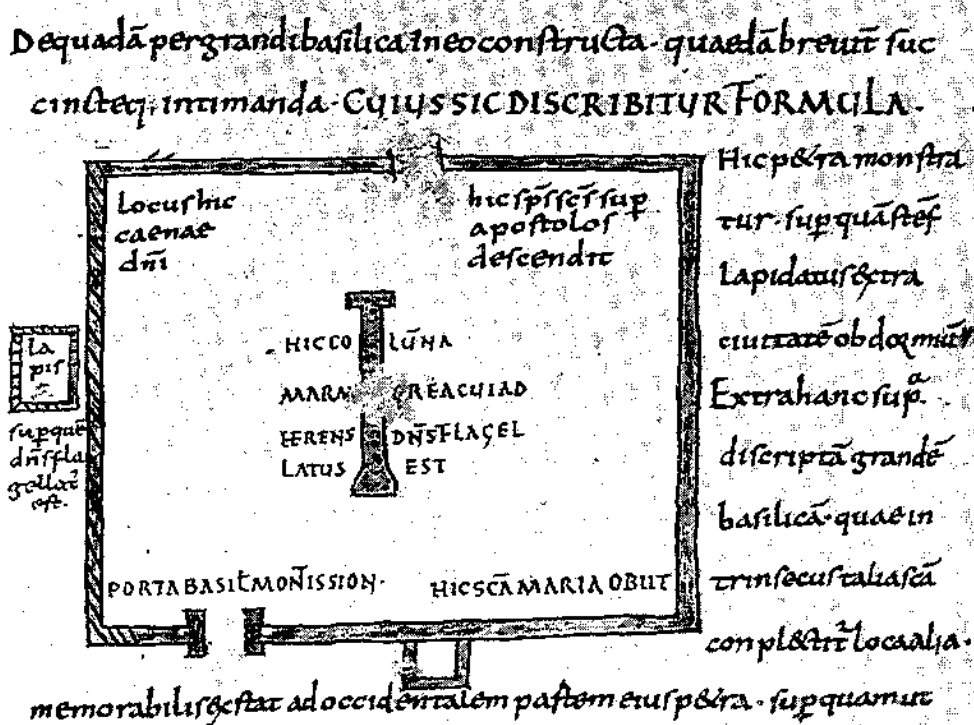 De quadā pergrandi basilica in eo constructa · quaedā breuit̄ suc
cincteq; intimanda · CUIUS SIC DISCRIBITUR FORMULA ·
Locus hic
caenae
dn̄i
hic sp̄s sc̄s sup̱
apostolos
descendit
HIC CO LŪNA
MARM OREA CUI AD
HERENS DN̄S FLAGEL
LATUS EST
la
pis
sup̱ quē
dn̄s fla
gellat᷒
est.
PORTA BASIL̄ MONT̄IS SION ·
HIC SC̄A MARIA OBIIT
Hic p&ra monstra
tur · sup̱ quā stef̄
lapidatus extra
ciuitatē obdormiuit̄
Extra hanc supͣ
discriptā grandē
basilicā · quae in
trinsecus talia sc̄a
conpl&tit᷒ loca alia ·
memorabilis extat ad occidentalem partem eius p&ra · sup̱ quam ut